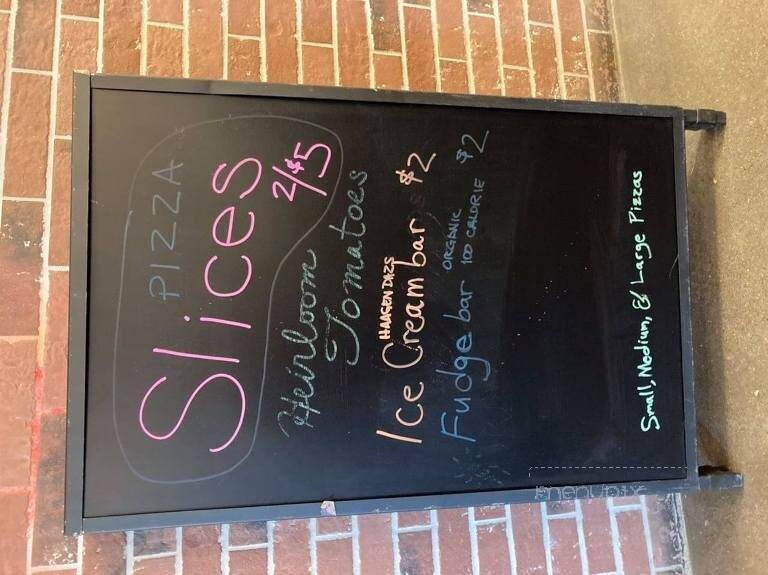 PIZZA
Slices
2/$5
Heirloom
Tomatoes
HAAGEN DAZS
Ice Cream bar $2
ORGANIC
Fudge bar 100 CALORIE $2
Small, Medium, & Large Pizzas
menupix